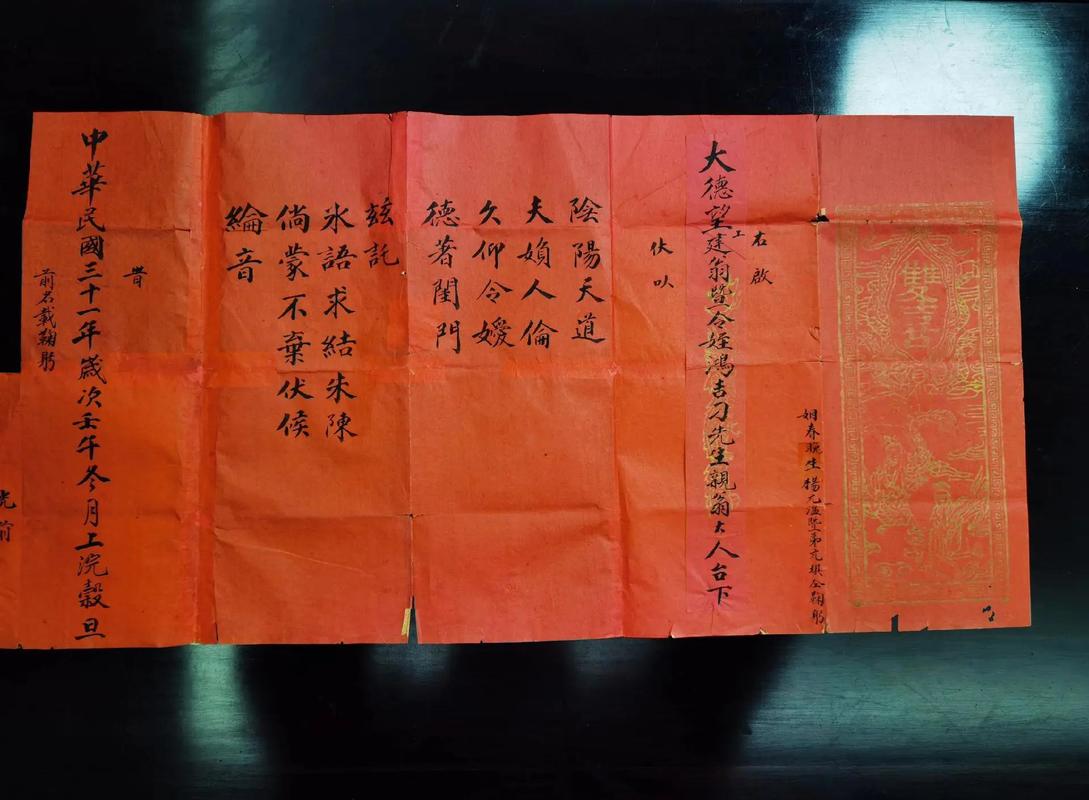 雙喜
姻眷晚生楊元溢暨弟充棋仝鞠躬
右啟
大德望建翁暨令姪鴻吉刁先生親翁大人台下
工
伏以
陰陽天道
夫婦人倫
久仰令嫒
德著閨門
茲託
氷語求結朱陳
倘蒙不棄伏候
綸音
旹
中華民國三十一年歲次壬午冬月上浣穀旦
前名載鞠躬
前